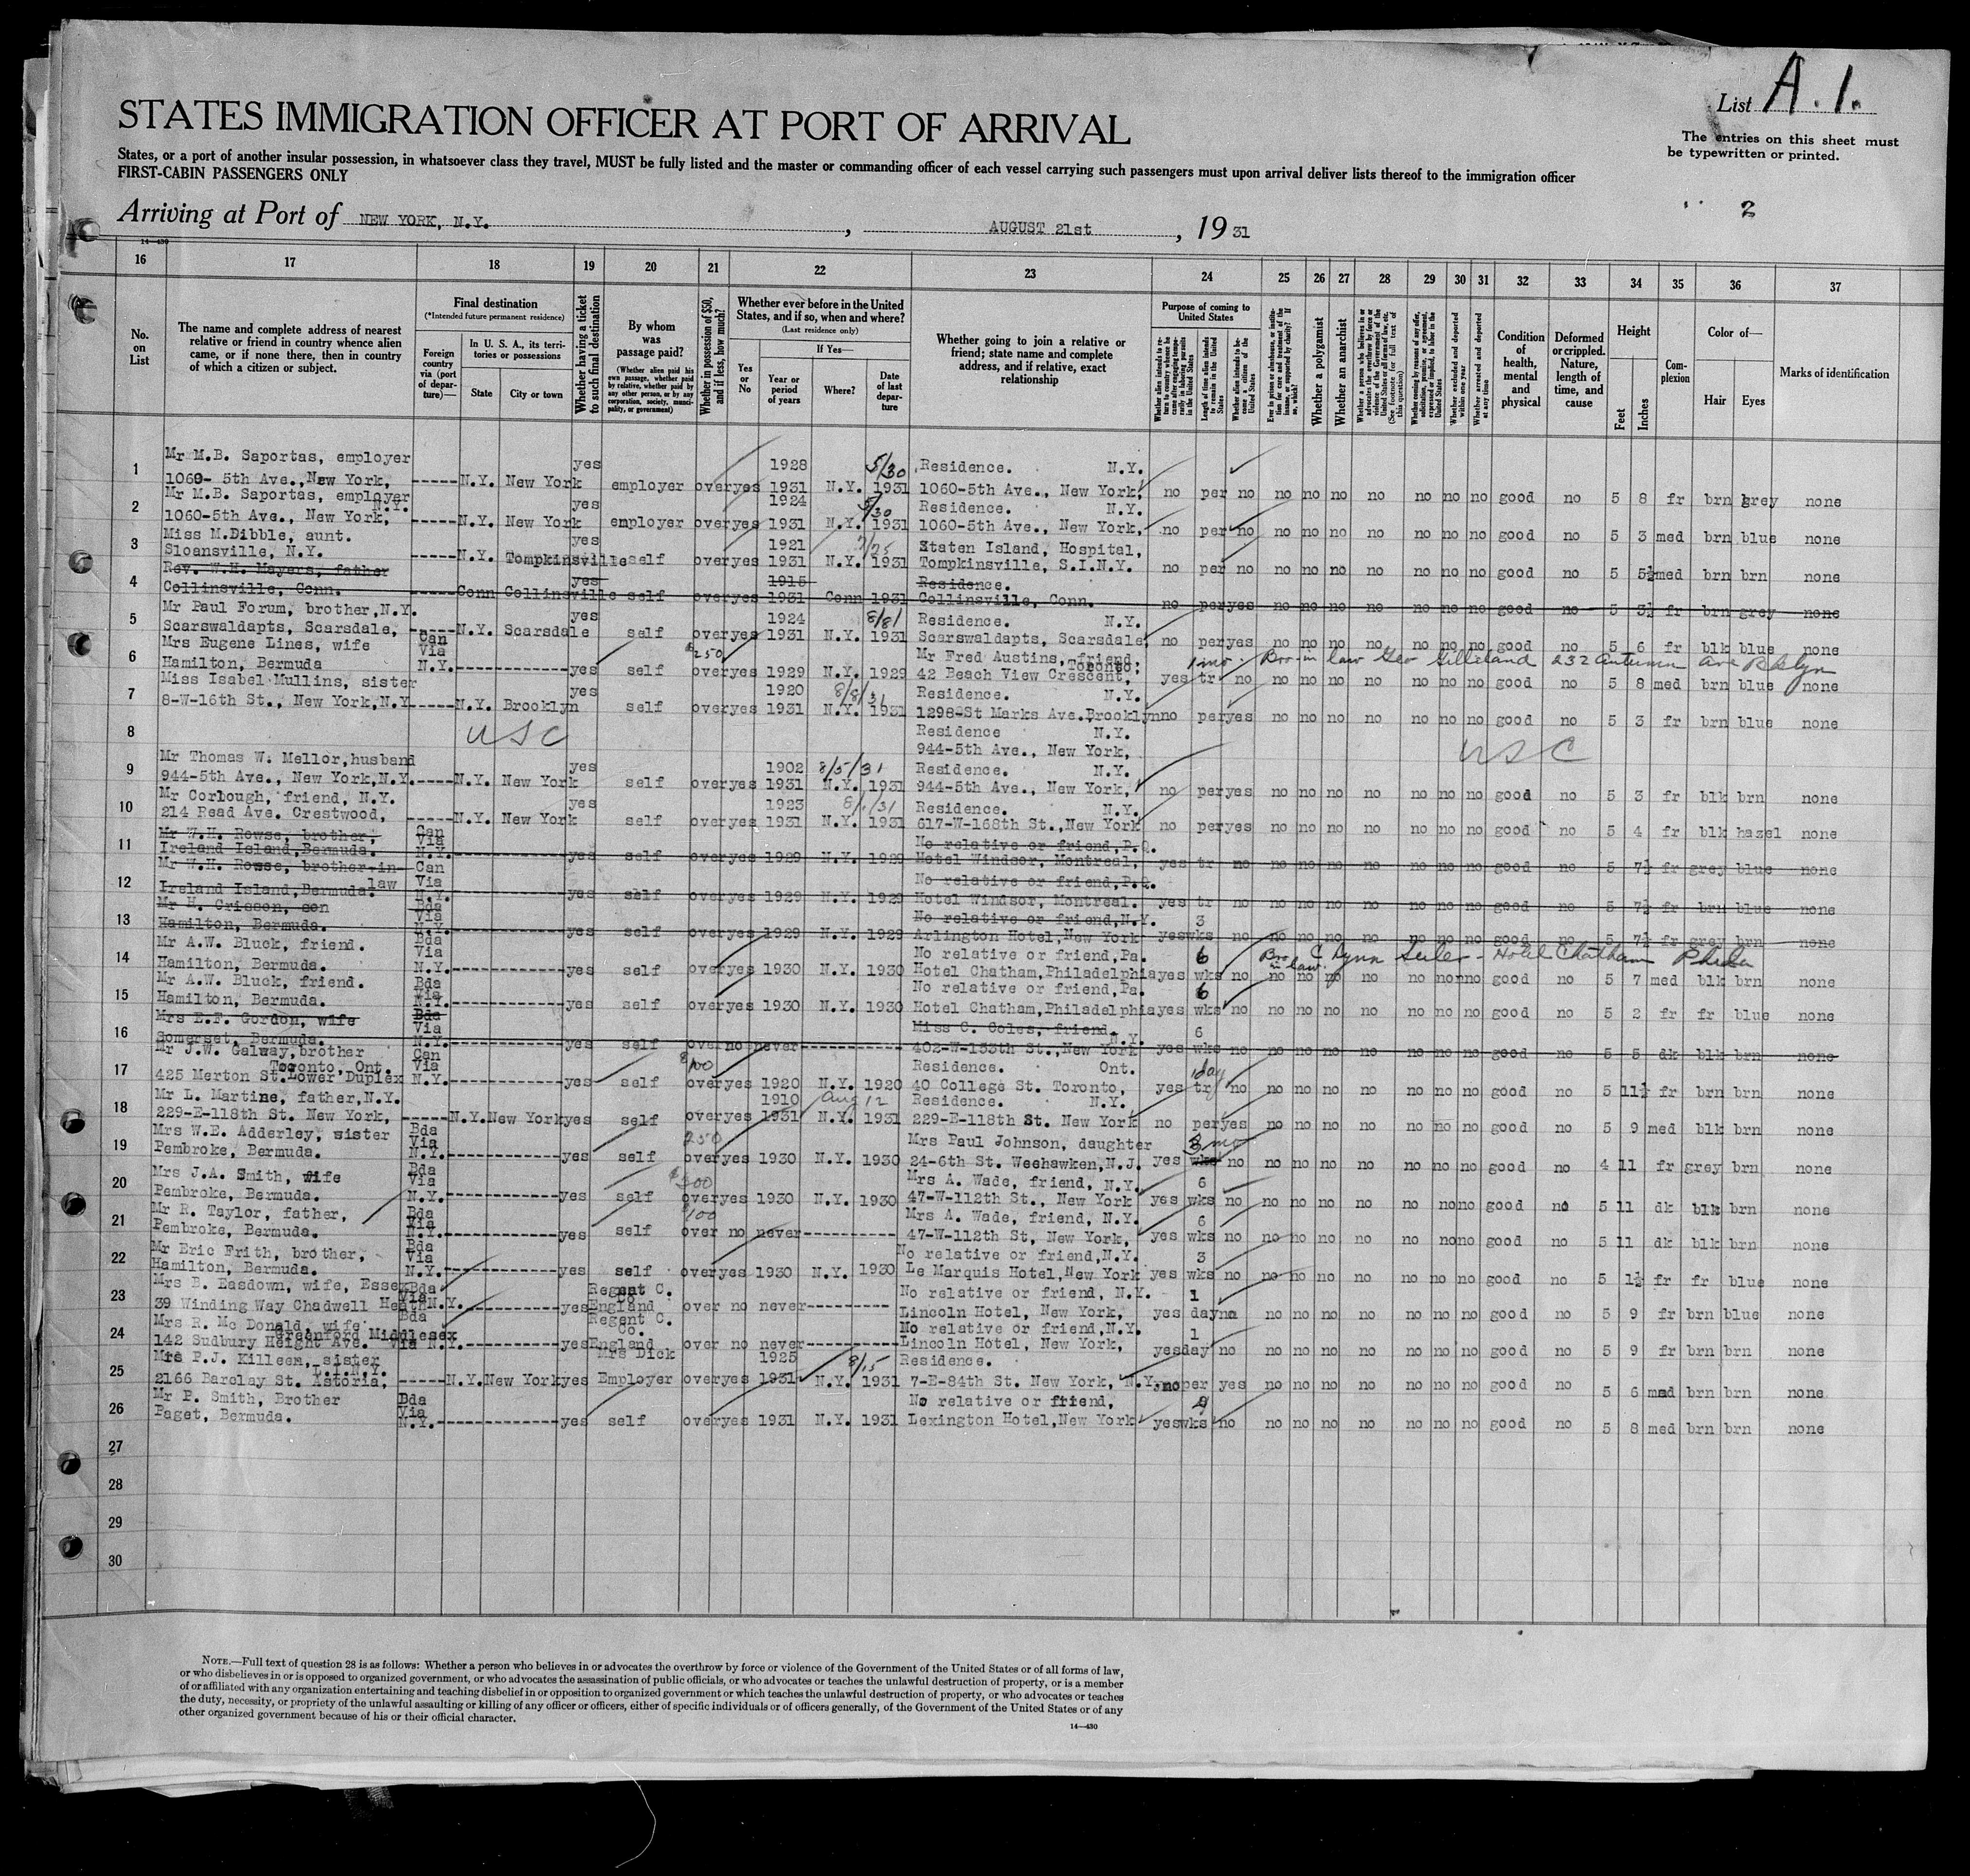 List A.1.
STATES IMMIGRATION OFFICER AT PORT OF ARRIVAL
The entries on this sheet must
be typewritten or printed.
States, or a port of another insular possession, in whatsoever class they travel, MUST be fully listed and the master or commanding officer of each vessel carrying such passengers must upon arrival deliver lists thereof to the immigration officer
FIRST-CABIN PASSENGERS ONLY
2
Arriving at Port of NEW YORK, N.Y. , AUGUST 21st , 19 31
14—430
16 17 18 19 20 21 22 23 24 25 26 27 28 29 30 31 32 33 34 35 36 37
No. on List
The name and complete address of nearest relative or friend in country whence alien came, or if none there, then in country of which a citizen or subject.
Final destination
(*Intended future permanent residence)
Foreign country via (port of departure)—
In U. S. A., its territories or possessions
State
City or town
Whether having a ticket to such final destination
By whom was passage paid?
(Whether alien paid his own passage, whether paid by relative, whether paid by any other person, or by any corporation, society, municipality, or government)
Whether in possession of $50, and if less, how much?
Whether ever before in the United States, and if so, when and where?
(Last residence only)
Yes or No
If Yes—
Year or period of years
Where?
Date of last departure
Whether going to join a relative or friend; state name and complete address, and if relative, exact relationship
Purpose of coming to United States
Whether alien intends to return to country whence he came after engaging temporarily in laboring pursuits in the United States
Length of time alien intends to remain in the United States
Whether alien intends to become a citizen of the United States
Ever in prison or almshouse, or institution for care and treatment of the insane, or supported by charity? If so, which?
Whether a polygamist
Whether an anarchist
Whether a person who believes in or advocates the overthrow by force or violence of the Government of the United States or all forms of law, etc. (See footnote for full text of this question)
Whether coming by reasons of any offer, solicitation, promise, or agreement, expressed or implied, to labor in the United States
Whether excluded and deported within one year
Whether arrested and deported at any time
Condition of health, mental and physical
Deformed or crippled. Nature, length of time, and cause
Height
Feet
Inches
Complexion
Color of—
Hair
Eyes
Marks of identification
Mr M.B. Saportas, employer yes 1928 5/30 Residence. N.Y.
1 1060- 5th Ave., New York, N.Y. -----N.Y. New York employer over yes 1931 N.Y. 1931 1060-5th Ave., New York, no per no no no no no no no no good no 5 8 fr brn grey none
Mr M.B. Saportas, employer yes 1924 5/30 Residence. N.Y.
2 1060-5th Ave., New York, -----N.Y. New York employer over yes 1931 N.Y. 1931 1060-5th Ave., New York, no per no no no no no no no no good no 5 3 med brn blue none
Miss M.Dibble, aunt. yes 1921 7/25 Staten Island, Hospital,
3 Sloansville, N.Y. -----N.Y. Tompkinsville self over yes 1931 N.Y. 1931 Tompkinsville, S.I.N.Y. no per no no no no no no no no good no 5 5½ med brn brn none
Rev. W.H. Mayers, father yes 1915 Residence.
4 Collinsville, Conn. -----Conn Collinsville self over yes 1931 Conn 1931 Collinsville, Conn. no per yes no no no no no no no good no 5 3½ fr brn grey none
Mr Paul Forum, brother, N.Y. yes 1924 8/81 Residence. N.Y.
5 Scarswaldapts, Scarsdale, -----N.Y. Scarsdale self over yes 1931 N.Y. 1931 Scarswaldapts, Scarsdale, no per yes no no no no no no no good no 5 6 fr blk blue none
Mrs Eugene Lines, wife Can Via $250 Mr Fred Austins, friend, Toronto. 1 mo. Bro in law Geo Gilleland 232 Autumn Ave Bklyn
6 Hamilton, Bermuda N.Y.------------yes self over yes 1929 N.Y. 1929 42 Beach View Crescent, yes tr no no no no no no no no good no 5 8 med brn blue none
Miss Isabel Mullins, sister yes 1920 8/8/31 Residence. N.Y.
7 8-W-16th St., New York,N.Y. -----N.Y. Brooklyn self over yes 1931 N.Y. 1931 1298-St Marks Ave.Brooklyn no per yes no no no no no no no good no 5 3 fr brn blue none
8 USC Residence N.Y. USC
944-5th Ave., New York,
Mr Thomas W. Mellor,husband yes 1902 8/5/31 Residence. N.Y.
9 944-5th Ave., New York,N.Y.-----N.Y. New York self over yes 1931 N.Y. 1931 944-5th Ave., New York, no per yes no no no no no no no good no 5 3 fr blk brn none
Mr Corlough, friend, N.Y. yes 1923 8/1/31 Residence. N.Y.
10 214 Read Ave. Crestwood, -----N.Y. New York self over yes 1931 N.Y. 1931 617-W-168th St.,New York no per yes no no no no no no no good no 5 4 fr blk hazel none
Mr W.H. Rowse, brother, Can Via No relative or friend,P.Q.
11 Ireland Island,Bermuda. N.Y.------------yes self over yes 1929 N.Y. 1929 Hotel Windsor, Montreal, yes tr no no no no no no no no good no 5 7½ fr grey blue none
Mr W.H. Rowse, brother-in-law Can Via No relative or friend,P.Q.
12 Ireland Island,Bermuda. N.Y.------------yes self over yes 1929 N.Y. 1929 Hotel Windsor, Montreal. yes tr no no no no no no no no good no 5 7½ fr brn blue none
Mr H. Crisson, son Bda Via No relative or friend,N.Y. 3
13 Hamilton, Bermuda. N.Y.------------yes self over yes 1929 N.Y. 1929 Arlington Hotel,New York yes wks no no no no no no no no good no 5 7½ fr grey brn none
Mr A.W. Bluck, friend. Bda Via No relative or friend,Pa. 6 Bro in law. C Lynn Seiler - Hotel Chatham Phila
14 Hamilton, Bermuda. N.Y.------------yes self over yes 1930 N.Y. 1930 Hotel Chatham,Philadelphia yes wks no no no no no no no no good no 5 7 med blk brn none
Mr A.W. Bluck, friend. Bda Via No relative or friend,Pa. 6
15 Hamilton, Bermuda. N.Y.------------yes self over yes 1930 N.Y. 1930 Hotel Chatham,Philadelphia yes wks no no no no no no no no good no 5 2 fr fr blue none
Mrs E.F. Gordon, wife Bda Via Miss C. Coles, friend, N.Y. 6
16 Somerset, Bermuda. N.Y.------------yes self over no never----------- 402-W-153th St.,New York yes wks no no no no no no no no good no 5 5 dk blk brn none
Mr J.W. Galway,brother Toronto, Ont. Can Via $100 Residence. Ont. 1 day
17 425 Merton St.Lower Duplex N.Y.------------yes self over yes 1920 N.Y. 1920 40 College St. Toronto, yes tr no no no no no no no no good no 5 11½ fr brn brn none
Mr L. Martine, father,N.Y. 1910 Aug 12 Residence. N.Y.
18 229-E-118th St. New York, -----N.Y.New York yes self over yes 1931 N.Y. 1931 229-E-118th St. New York no per yes no no no no no no no good no 5 9 med blk brn none
Mrs W.E. Adderley, sister Bda Via 250 Mrs Paul Johnson, daughter 3 mo
19 Pembroke, Bermuda. N.Y.------------yes self over yes 1930 N.Y. 1930 24-6th St. Weehawken,N.J. yes wks no no no no no no no no good no 4 11 fr grey brn none
Mrs J.A. Smith, wife Bda Via $300 Mrs A. Wade, friend, N.Y. 6
20 Pembroke, Bermuda. N.Y.------------yes self over yes 1930 N.Y. 1930 47-W-112th St., New York yes wks no no no no no no no no good no 5 11 dk blk brn none
Mr R. Taylor, father, Bda Via $100 Mrs A. Wade, friend, N.Y. 6
21 Pembroke, Bermuda. N.Y.------------yes self over no never----------- 47-W-112th St, New York, yes wks no no no no no no no no good no 5 11 dk blk brn none
Mr Eric Frith, brother, Bda Via No relative or friend,N.Y. 3
22 Hamilton, Bermuda. N.Y.------------yes self over yes 1930 N.Y. 1930 Le Marquis Hotel,New York yes wks no no no no no no no no good no 5 1½ fr fr blue none
Mrs B. Easdown, wife, Essex Bda Via Regent C. Co. No relative or friend, N.Y. 1
23 39 Winding Way Chadwell Heath N.Y.------------yes England over no never--------- Lincoln Hotel, New York, yes day no no no no no no no no good no 5 9 fr brn blue none
Mrs R. Mc Donald, wife Greenford Middlesex Bda Regent C. Co. No relative or friend,N.Y. 1
24 142 Sudbury Height Ave. Via N.Y.------------yes England over no never----------- Lincoln Hotel, New York, yes day no no no no no no no no good no 5 9 fr brn brn none
Mrs P.J. Killeen, sister L.I.N.Y. Mrs Dick 1925 8/15 Residence.
25 2166 Barclay St. Astoria, -----N.Y.New York yes Employer over yes 1931 N.Y. 1931 7-E-84th St. New York, N.Y. no per yes no no no no no no no good no 5 6 med brn brn none
Mr P. Smith, Brother Bda Via No relative or friend,
26 Paget, Bermuda. N.Y.------------yes self over yes 1931 N.Y. 1931 Lexington Hotel,New York yes wks no no no no no no no no good no 5 8 med brn brn none
27
28
29
30
NOTE.—Full text of question 28 is as follows: Whether a person who believes in or advocates the overthrow by force or violence of the Government of the United States or of all forms of law,
or who disbelieves in or is opposed to organized government, or who advocates the assassination of public officials, or who advocates or teaches the unlawful destruction of property, or is a member
of or affiliated with any organization entertaining and teaching disbelief in or opposition to organized government or which teaches the unlawful destruction of property, or who advocates or teaches
the duty, necessity, or propriety of the unlawful assaulting or killing of any officer or officers, either of specific individuals or of officers generally, of the Government of the United States or of any
other organized government because of his or their official character.
14—430